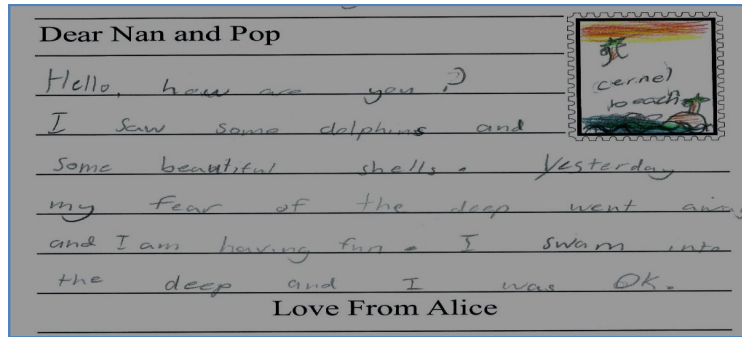 Dear Nan and Pop
Hello, how are you?
I saw some dolphins and
some beautiful shells. Yesterday
my fear of the deep went away
and I am having fun. I swam into
the deep and I was OK.
Love From Alice
cernel
beach